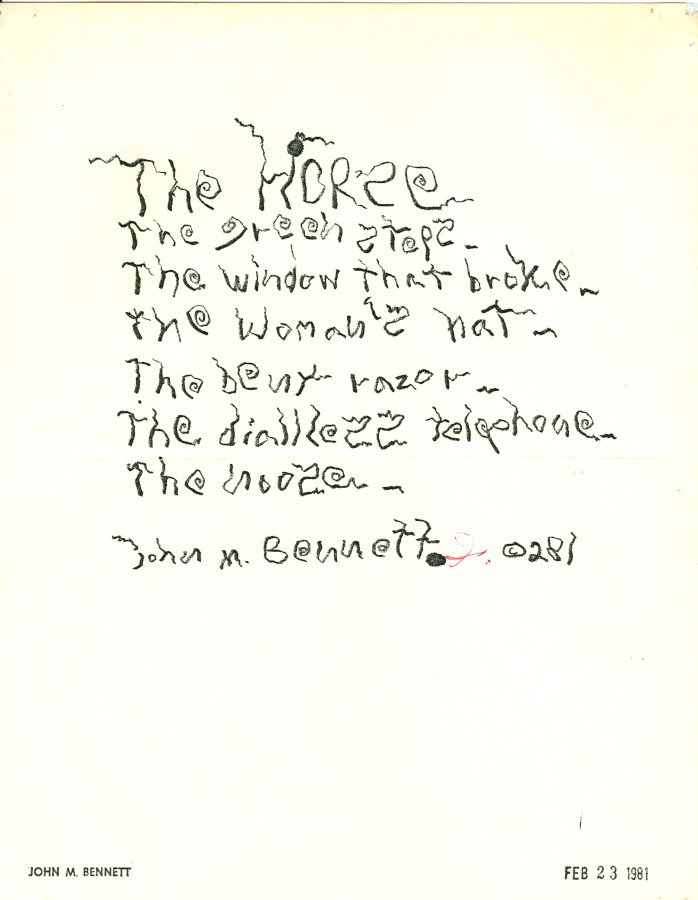 The HORSE
The green steps
The window that broke
The woman's hat
The bent razor
The dialless telephone
The noose
John M. Bennett. ©281
JOHN M. BENNETT
FEB 23 1981